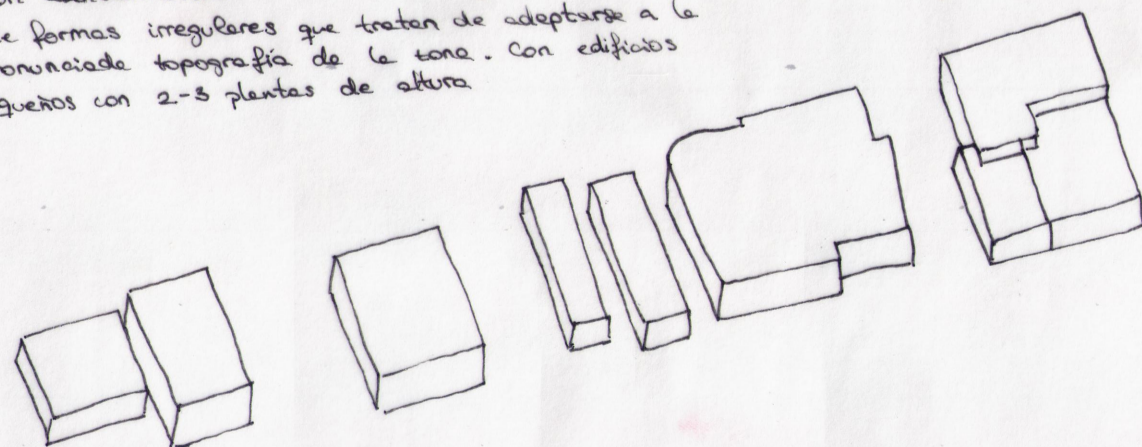 e formas irregulares que tratan de adaptarse a la
onunciada topografía de la zona. Con edificios
queños con 2-3 plantas de altura